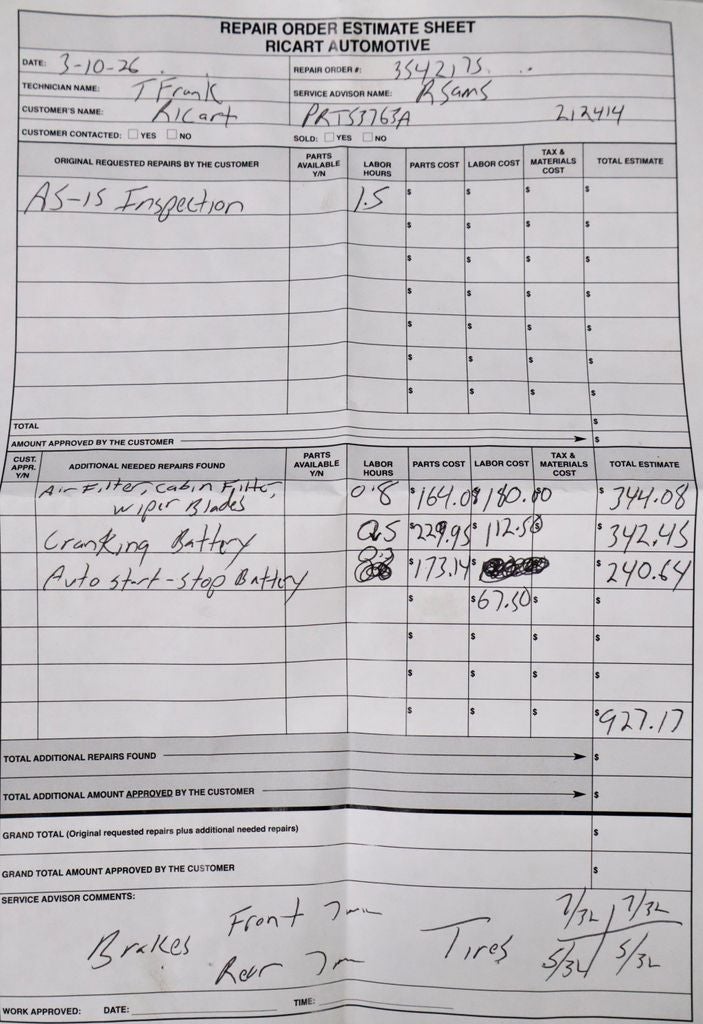 REPAIR ORDER ESTIMATE SHEET
RICART AUTOMOTIVE
DATE: 3-10-26 REPAIR ORDER #: 3542175
TECHNICIAN NAME: T Frank SERVICE ADVISOR NAME: RSams
CUSTOMER'S NAME: Ricart PRT53763A 212414
CUSTOMER CONTACTED: YES NO SOLD: YES NO
ORIGINAL REQUESTED REPAIRS BY THE CUSTOMER PARTS AVAILABLE Y/N LABOR HOURS PARTS COST LABOR COST TAX & MATERIALS COST TOTAL ESTIMATE
AS-IS Inspection 1.5 $ $ $ $
$ $ $ $
$ $ $ $
$ $ $ $
$ $ $ $
$ $ $ $
$ $ $ $
TOTAL $
AMOUNT APPROVED BY THE CUSTOMER $
CUST. APPR. Y/N ADDITIONAL NEEDED REPAIRS FOUND PARTS AVAILABLE Y/N LABOR HOURS PARTS COST LABOR COST TAX & MATERIALS COST TOTAL ESTIMATE
Air Filter, Cabin Filter, 0.8 $164.08 $180.00 $344.08
Wiper Blades
Cranking Battery 0.5 $229.95 $112.50 $342.45
Auto start-stop Battery $173.14 $ $240.64
$67.50 $ $
$ $ $ $
$ $ $ $
$ $ $ $927.17
TOTAL ADDITIONAL REPAIRS FOUND $
TOTAL ADDITIONAL AMOUNT APPROVED BY THE CUSTOMER $
GRAND TOTAL (Original requested repairs plus additional needed repairs) $
GRAND TOTAL AMOUNT APPROVED BY THE CUSTOMER $
SERVICE ADVISOR COMMENTS:
Brakes Front 7mm Tires 7/32 7/32
Rear 7m 5/32 5/32
WORK APPROVED: DATE: TIME: